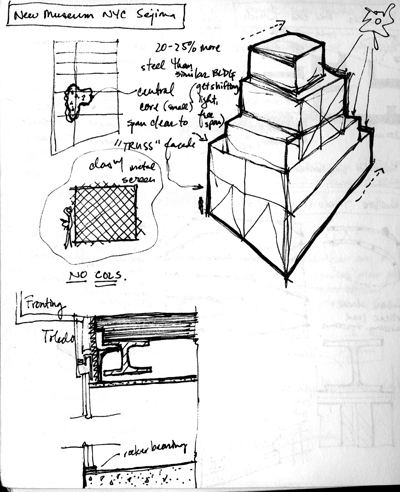 New Museum NYC Sejima
20-25% more
steel than
similar BLDG
central
(get shifting
core (small)
light,
free
span)
span clear to
"TRUSS" facade
metal
screen
NO COLS.
Fronting
Toledo
rocker bearing